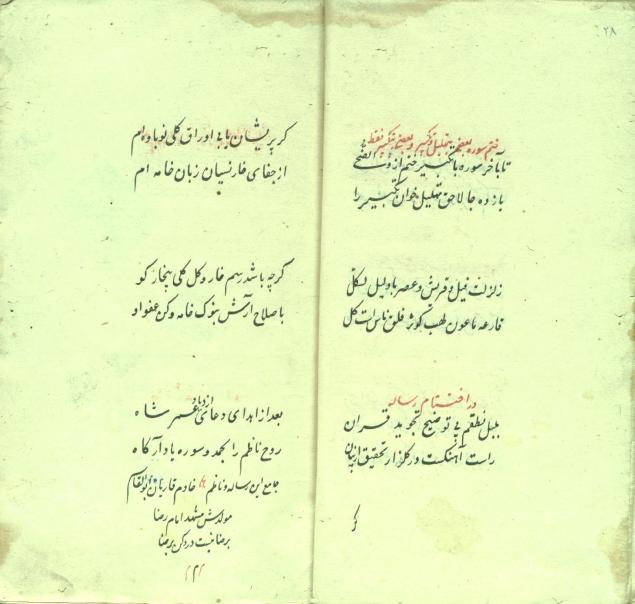 ۲۸
ختم سوره بعضی بتهلیل و تکبیر و بعضی بتکبیر فقط
تا بآخر سوره با تکبیر ختم از والضحی
یازده جا لاحق تهلیل خوان تکبیر را
زلزلت فیل و قریش و عصر با ولیل لکل
قارعه ماعون لهب کوثر فلق ناس است کل
در اختتام رساله
بلبل نطقم پی توضیح تجوید قران
راست آهنگست در گلزار تحقیق از بیان
کر
گر پریشان یابی اوراق کلی نوباوه ام
از جفای خار نسیان زبان خامه ام
گرچه باشد رسم خار و کل کلی بنجار کو
باصلاح آرش بنوک خامه و کن عفو او
بعد از اهدای دعای ازدیاد عمر شاه
روح ناظم را بحمد و سوره یاد آر گاه
جامع این رساله و ناظم خادم قاریان ابوالقاسم
مولدش مشهد امام رضا
برضا نیت در دکن برضا